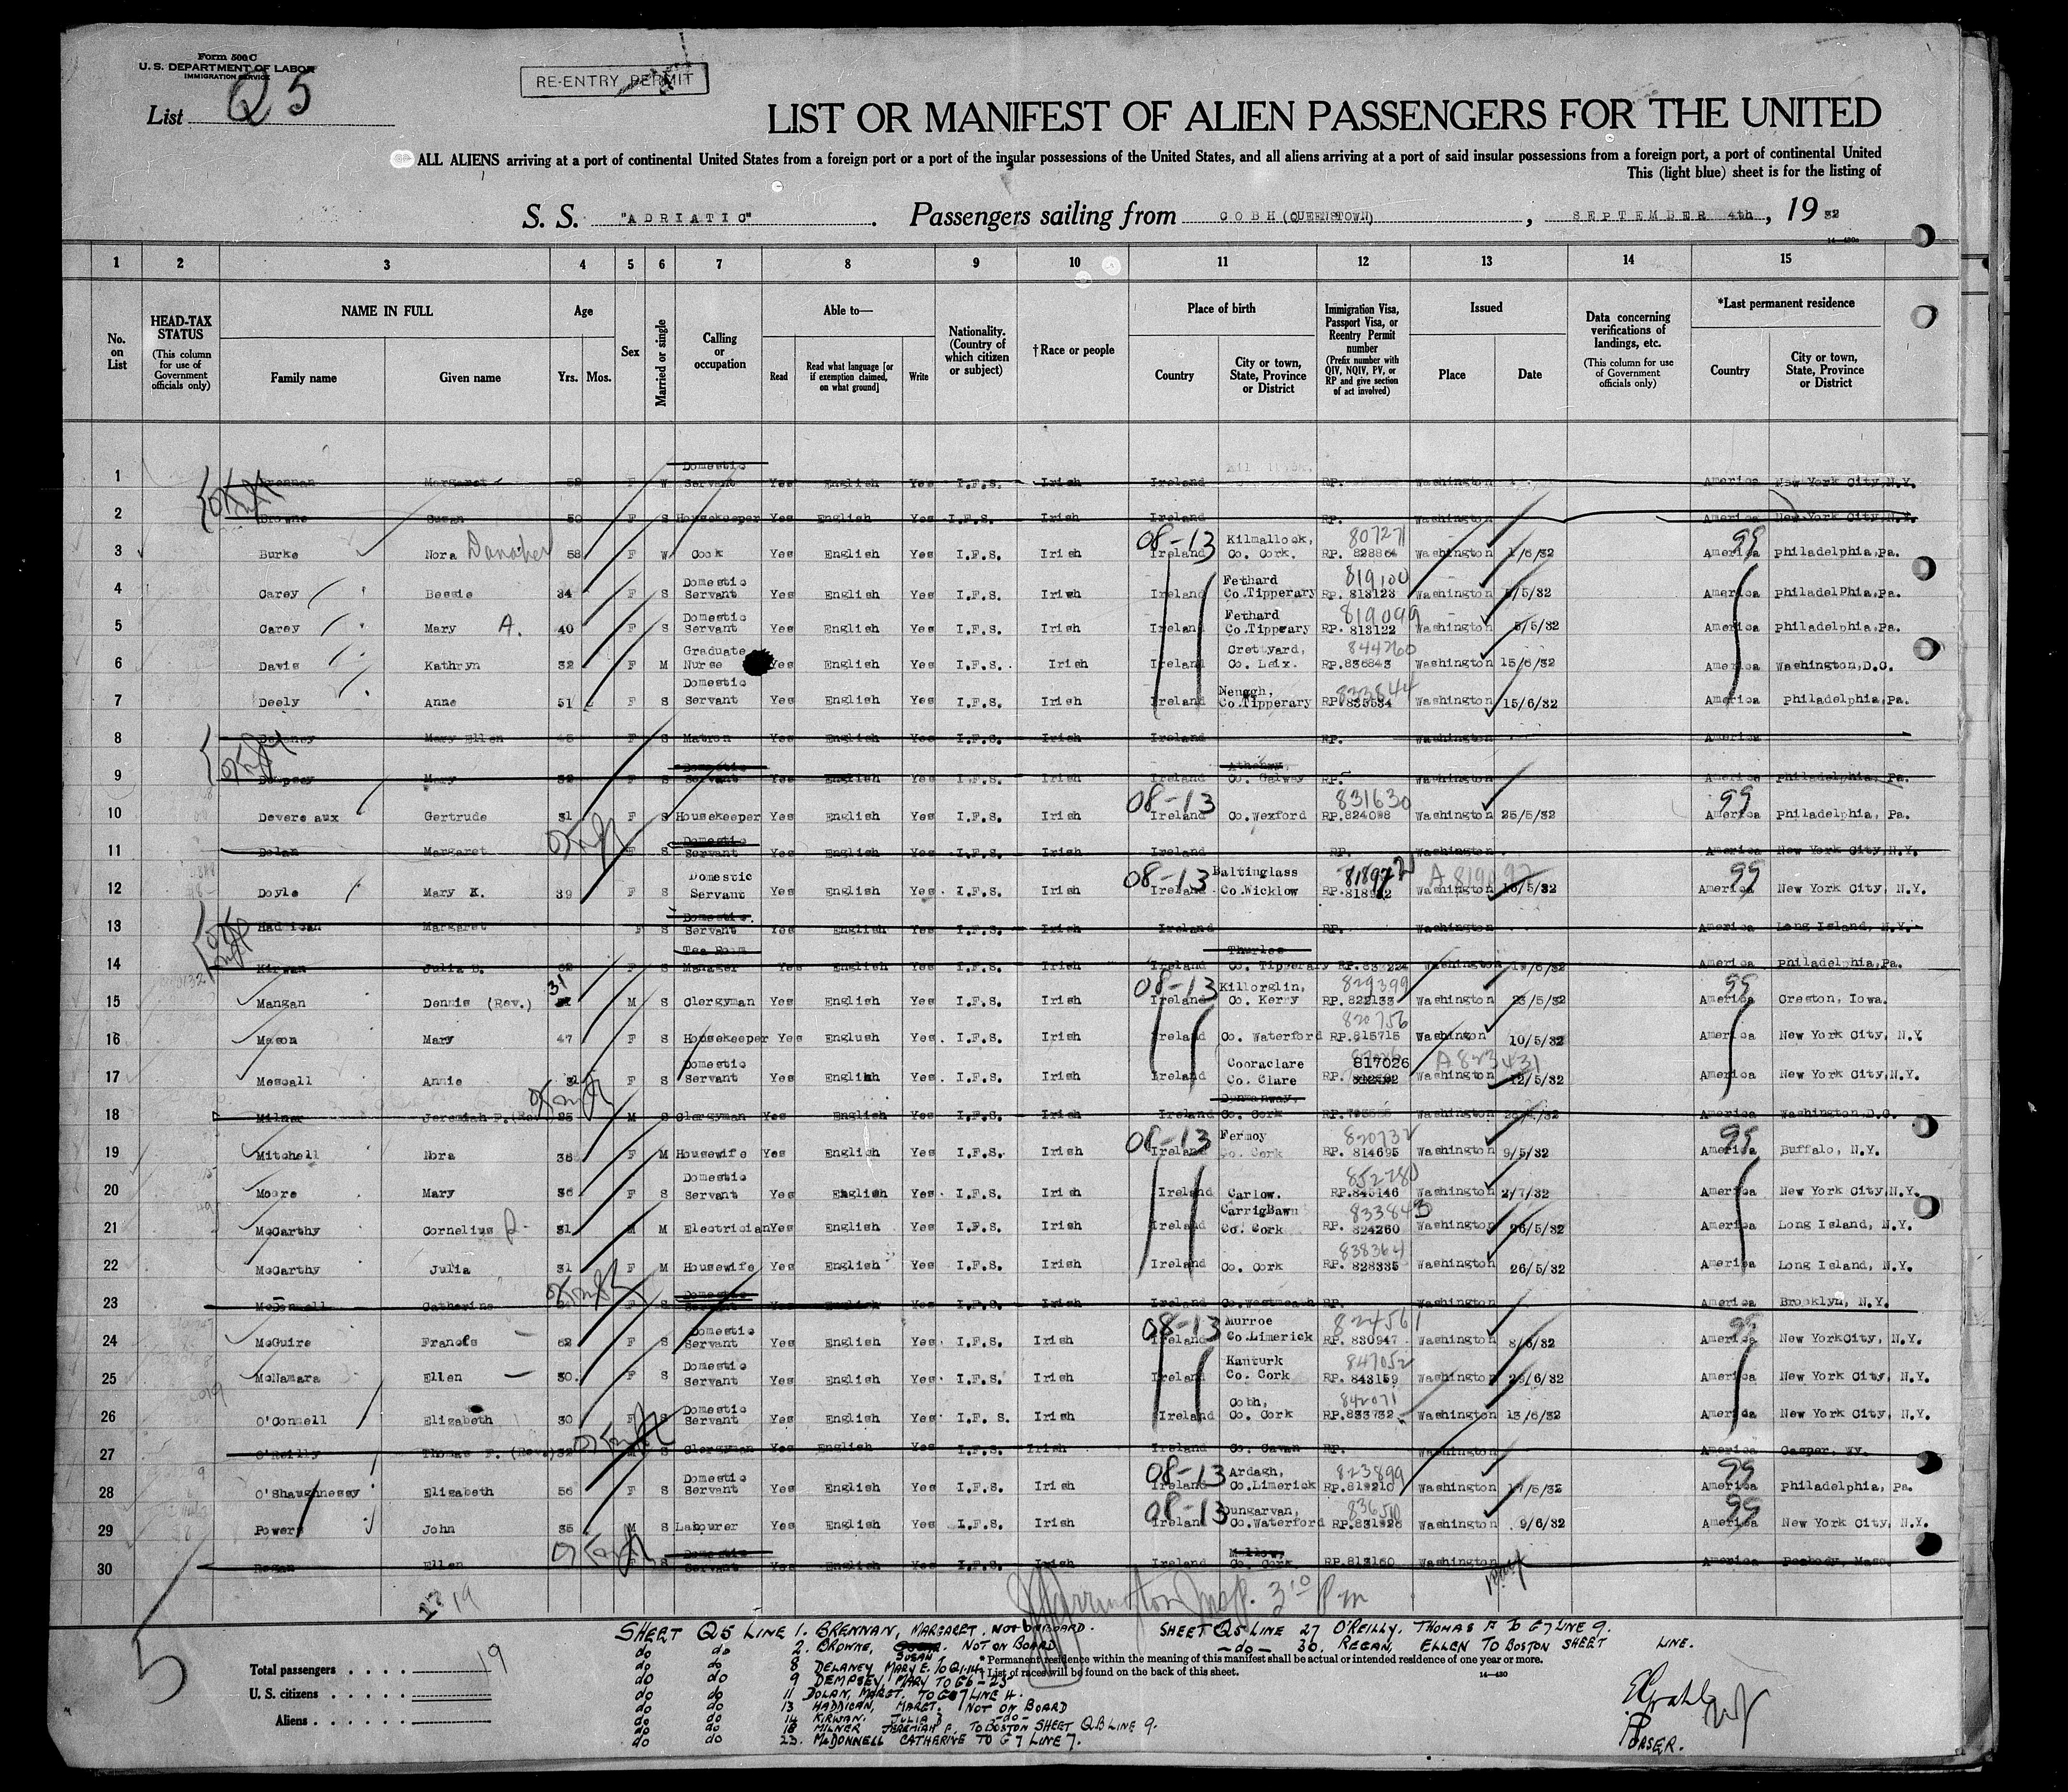 Form 500 C
U. S. DEPARTMENT OF LABOR
IMMIGRATION SERVICE
RE-ENTRY PERMIT
List Q 5
LIST OR MANIFEST OF ALIEN PASSENGERS FOR THE UNITED
ALL ALIENS arriving at a port of continental United States from a foreign port or a port of the insular possessions of the United States, and all aliens arriving at a port of said insular possessions from a foreign port, a port of continental United
This (light blue) sheet is for the listing of
S. S. "ADRIATIC". Passengers sailing from COBH (QUEENSTOWN), SEPTEMBER 4th, 1932
1 2 3 4 5 6 7 8 9 10 11 12 13 14 15
No. on List
HEAD-TAX STATUS (This column for use of Government officials only)
NAME IN FULL Family name Given name
Age Yrs. Mos.
Sex
Married or single
Calling or occupation
Able to— Read Read what language [or if exemption claimed, on what ground] Write
Nationality. (Country of which citizen or subject)
†Race or people
Place of birth Country City or town, State, Province or District
Immigration Visa, Passport Visa, or Reentry Permit number (Prefix number with QIV, NQIV, PV, or RP and give section of act involved)
Issued Place Date
Data concerning verifications of landings, etc. (This column for use of Government officials only)
*Last permanent residence Country City or town, State, Province or District
1 Brennan Margaret 52 F W Domestic Servant Yes English Yes I.F.S. Irish Ireland RP. Washington America New York City, N.Y.
2 Browne Susan 50 F S Housekeeper Yes English Yes I.F.S. Irish Ireland RP. Washington America New York City, N.Y.
3 Burke Nora Danaher 58 F W Cook Yes English Yes I.F.S. Irish 08-13 Ireland Kilmallock, Co. Cork. 807271 RP. 828864 Washington 1/6/32 99 America Philadelphia, Pa.
4 Carey Bessie 34 F S Domestic Servant Yes English Yes I.F.S. Irish Ireland Fethard Co.Tipperary 819100 RP. 813123 Washington 5/5/32 America Philadelphia, Pa.
5 Carey Mary A. 40 F S Domestic Servant Yes English Yes I.F.S. Irish Ireland Fethard Co.Tipperary 819099 RP. 813122 Washington 5/5/32 America Philadelphia, Pa.
6 Davis Kathryn 32 F M Graduate Nurse Yes English Yes I.F.S. Irish Ireland Crettyard, Co. Leix. 844260 RP.836843 Washington 15/6/32 America Washington, D.C.
7 Deely Anne 51 F S Domestic Servant Yes English Yes I.F.S. Irish Ireland Nenagh, Co.Tipperary 833844 RP.835534 Washington 15/6/32 America Philadelphia, Pa.
8 Delaney Mary Ellen F S Matron Yes English Yes I.F.S. Irish Ireland RP. Washington America
9 Dempsey Mary 32 F S Domestic Servant Yes English Yes I.F.S. Irish Ireland Athenry, Co. Galway RP. Washington America Philadelphia, Pa.
10 Devereaux Gertrude 31 F S Housekeeper Yes English Yes I.F.S. Irish 08-13 Ireland Co. Wexford 831630 RP.824098 Washington 25/5/32 99 America Philadelphia, Pa.
11 Dolan Margaret F S Domestic Servant Yes English Yes I.F.S. Irish Ireland RP. Washington America New York City, N.Y.
12 Doyle Mary K. 39 F S Domestic Servant Yes English Yes I.F.S. Irish 08-13 Ireland Baltinglass Co.Wicklow RP. Washington 16/5/32 99 America New York City, N.Y.
13 Haddican Margaret F S Domestic Servant Yes English Yes I.F.S. Irish Ireland RP. Washington America Long Island, N.Y.
14 Kirwan Julia B. 62 F S Tea Room Manager Yes English Yes I.F.S. Irish Ireland Thurles Co. Tipperary RP.832224 Washington America Philadelphia, Pa.
15 Mangan Dennis (Rev.) 31 M S Clergyman Yes English Yes I.F.S. Irish 08-13 Ireland Killorglin, Co. Kerry 829399 RP. 822133 Washington 23/5/32 99 America Creston, Iowa.
16 Mason Mary 47 F S Housekeeper Yes Englush Yes I.F.S. Irish Ireland Co. Waterford 820756 RP.815715 Washington 10/5/32 America New York City, N.Y
17 Mescall Annie 31 F S Domestic Servant Yes English Yes I.F.S. Irish Ireland Cooraclare Co. Clare 817026 RP. A823431 Washington 12/5/32 America New York City, N.Y.
18 Milner Jeremiah P. (Rev) 25 M S Clergyman Yes English Yes I.F.S. Irish Ireland Dunmanway, Co. Cork RP. Washington America Washington, D.C.
19 Mitchell Nora 36 F M Housewife Yes English Yes I.F.S. Irish 08-13 Ireland Fermoy Co. Cork 820732 RP. 814695 Washington 9/5/32 99 America Buffalo, N.Y.
20 Moore Mary 36 F S Domestic Servant Yes English Yes I.F.S. Irish Ireland Carlow. 852780 RP.845146 Washington 2/7/32 America New York City, N.Y.
21 McCarthy Cornelius P. 31 M M Electrician Yes English Yes I.F.S. Irish Ireland CarrigBawn Co. Cork 833843 RP. 824260 Washington 26/5/32 America Long Island, N.Y.
22 McCarthy Julia 31 F M Housewife Yes English Yes I.F.S. Irish Ireland Co. Cork 838364 RP. 828335 Washington 26/5/32 America Long Island, N.Y.
23 McDonnell Catherine F S Domestic Servant Yes English Yes I.F.S. Irish Ireland Co.Westmeath RP. Washington America Brooklyn, N.Y.
24 McGuire Francis 62 F S Domestic Servant Yes English Yes I.F.S. Irish 08-13 Ireland Murroe Co.Limerick 824561 RP. 830947 Washington 8/6/32 99 America New YorkCity, N.Y.
25 McNamara Ellen 30 F S Domestic Servant Yes English Yes I.F.S. Irish Ireland Kanturk Co. Cork 847052 RP. 843159 Washington 29/6/32 America New York City, N.Y.
26 O'Connell Elizabeth 30 F S Domestic Servant Yes English Yes I.F. S. Irish Ireland Cobh, Co. Cork 842071 RP.833732 Washington 13/6/32 America New York City, N.Y.
27 O'Reilly Thomas F. (Rev.) 32 M S Clergyman Yes English Yes I.F.S. Irish Ireland Co. Cavan RP. Washington America Casper, Wy.
28 O'Shaughnessy Elizabeth 56 F S Domestic Servant Yes English Yes I.F.S. Irish 08-13 Ireland Ardagh, Co.Limerick 823899 RP.819210 Washington 17/5/32 99 America Philadelphia, Pa.
29 Powers John 35 M S Labourer Yes English Yes I.F.S. Irish 08-13 Ireland Dungarvan, Co.Waterford RP.831928 Washington 9/6/32 99 America New York City, N.Y.
30 Regan Ellen F S Domestic Servant Yes English Yes I.F.S. Irish Ireland Mallow, Co. Cork RP.813160 Washington America Peabody, Mass.
19
Insp. 3 10 Pm
SHEET Q5 LINE 1. BRENNAN, MARGARET. NOT ON BOARD.
do do 2. BROWNE, SUSAN. NOT ON BOARD
do do 8 DELANEY MARY E. TO G1-14
do do 9 DEMPSEY MARY TO G6-25
do do 11 DOLAN, MARGT. TO G7 LINE 4.
do do 13 HADDICAN, MARGT. NOT ON BOARD
do do 14 KIRWAN. JULIA B -do-
do do 18 MILNER JEREMIAH P. TO BOSTON SHEET QB LINE 9.
do do 23. McDONNELL CATHERINE TO G7 LINE 7.
SHEET Q5 LINE 27 O'REILLY. THOMAS F TO G7 LINE 9.
-do- 30. REGAN, ELLEN TO BOSTON SHEET LINE.
* Permanent residence within the meaning of this manifest shall be actual or intended residence of one year or more.
† List of races will be found on the back of this sheet.
14-430
Total passengers . . . . 19
U. S. citizens . . . . .
Aliens . . . . . .
5
PURSER.